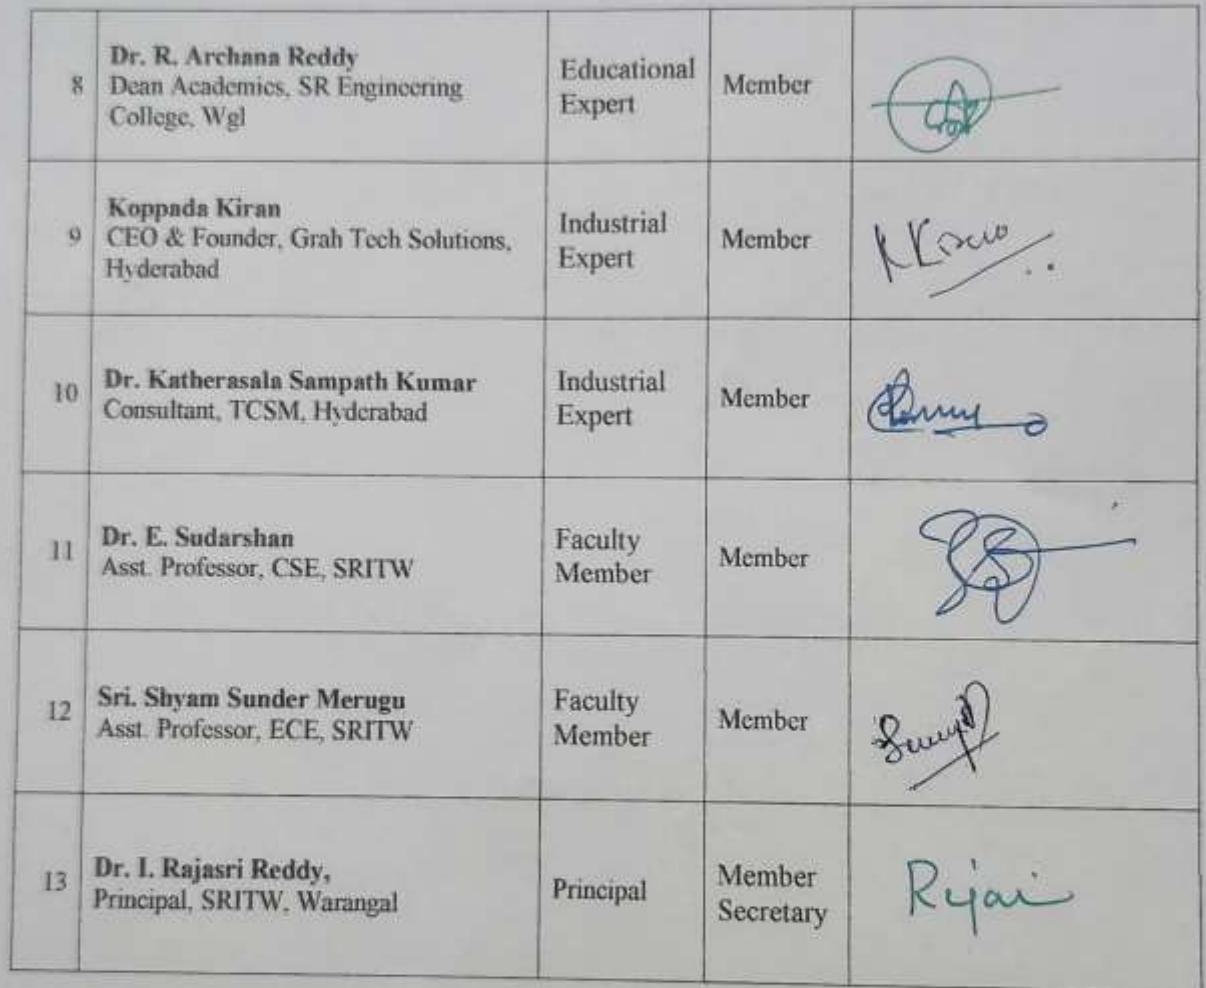 8
Dr. R. Archana Reddy
Dean Academics, SR Engineering
College, Wgl
Educational
Expert
Member
9
Koppada Kiran
CEO & Founder, Grah Tech Solutions,
Hyderabad
Industrial
Expert
Member
10
Dr. Katherasala Sampath Kumar
Consultant, TCSM, Hyderabad
Industrial
Expert
Member
11
Dr. E. Sudarshan
Asst. Professor, CSE, SRITW
Faculty
Member
Member
12
Sri. Shyam Sunder Merugu
Asst. Professor, ECE, SRITW
Faculty
Member
Member
13
Dr. I. Rajasri Reddy,
Principal, SRITW, Warangal
Principal
Member
Secretary